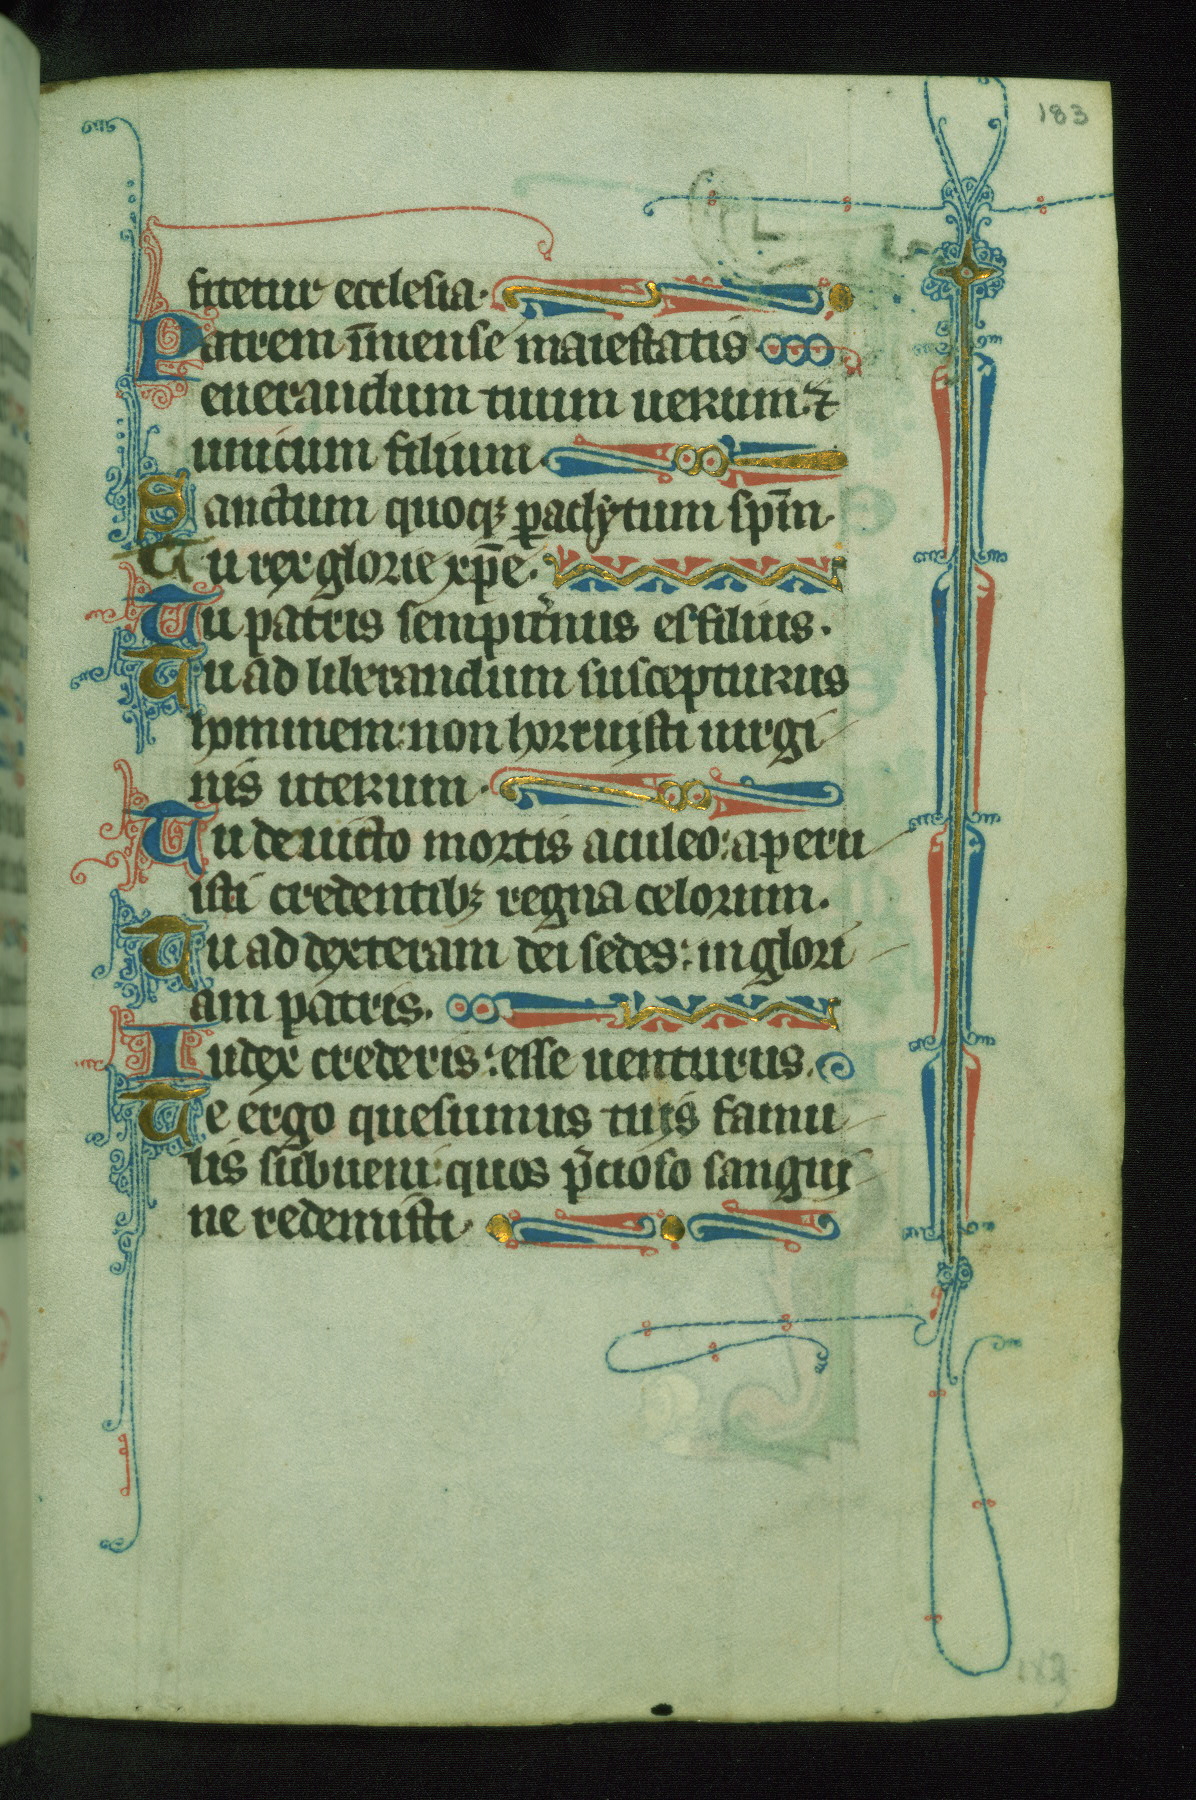 183
fitetur ecclesia.
Patrem īmense maiestatis
euerandum tuum uerum. ⁊
unicum filium.
Sanctum quoqꝫ ꝑaclytum spm̄.
Tu rex glorie xp̄e.
Tu patris sempit̉nus es filius.
Tu ad liberandum suscepturus
hominem: non horruisti uirgi
nis uterum.
Tu deuicto mortis aculeo: aperu
isti credentibꝫ regna celorum.
Tu ad dexteram dei sedes: in glori
am patris.
Iudex crederis: esse uenturus.
Te ergo quesumus tuis famu
lis subueni: quos p̄cioso sangui
ne redemisti.